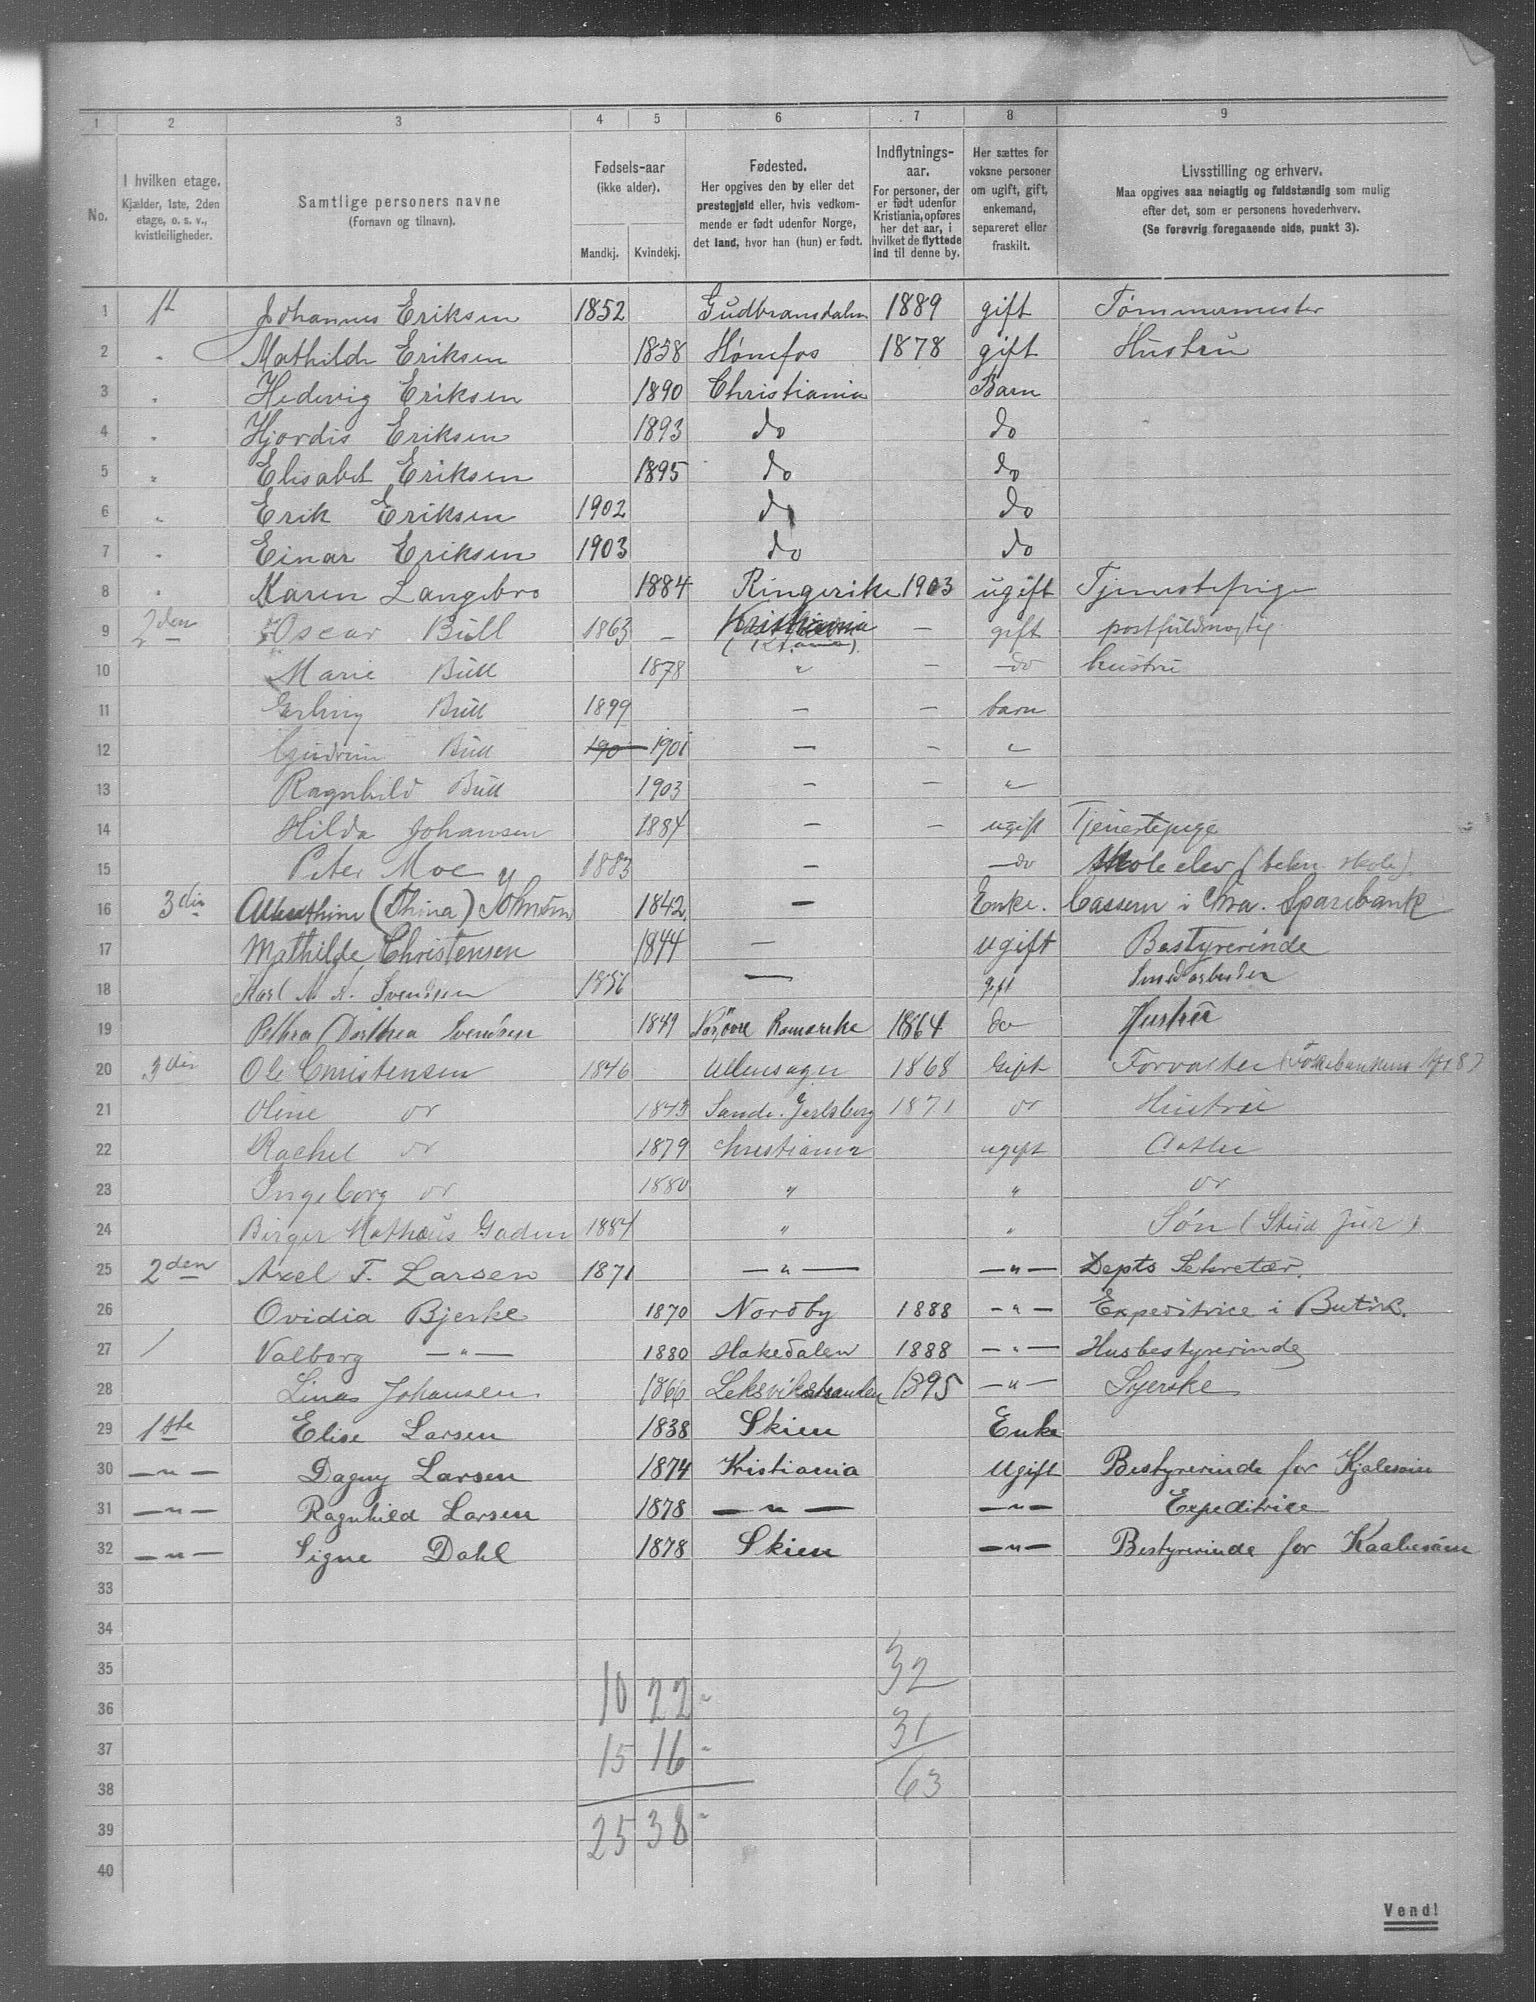 1 2 3 4 5 6 7 8 9
No.
I hvilken etage.
Kjælder, 1ste, 2den
etage, o. s. v.,
kvistleiligheder.
Samtlige personers navne
(Fornavn og tilnavn).
Fødsels-aar
(ikke alder).
Mandkj. Kvindekj.
Fødested.
Her opgives den by eller det
prestegjeld eller, hvis vedkom-
mende er født udenfor Norge,
det land, hvor han (hun) er født.
Indflytnings-
aar.
For personer, der
er født udenfor
Kristiania, opføres
her det aar, i
hvilket de flyttede
ind til denne by.
Her sættes for
voksne personer
om ugift, gift,
enkemand,
separeret eller
fraskilt.
Livsstilling og erhverv.
Maa opgives saa nøiagtig og fuldstændig som mulig
efter det, som er personens hovederhverv.
(Se forøvrig foregaaende side, punkt 3).
1 1st Johannes Eriksen 1852 Gudbransdalen 1889 gift Tømmermester
2 " Mathilde Eriksen 1858 Hønefos 1878 gift Hustru
3 " Hedevig Eriksen 1890 Christiania Barn
4 " Hjordis Eriksen 1893 do do
5 " Elisabet Eriksen 1895 do do
6 " Erik Eriksen 1902 do do
7 " Einar Eriksen 1903 do do
8 " Karen Langebro 1884 Ringerike 1903 ugift Tjenestepige
9 2den Oscar Bull 1863 — Kristiania — gift postfuldmægtig
(Kr.ania).
10 Marie Bull 1878 " — do hustru
11 Erling Bull 1899 — — barn
12 Gudrun Bull 190 1901 — — "
13 Ragnhild Bull 1903 — — "
14 Hilda Johansen 1884 — — ugift Tjenestepige
15 Peter Moe 1883 — do skole elev (tekn. skole).
16 3die (Thina) Johnsen 1842. — Enke. Casserer i Chra. Sparebank
17 Mathilde Christensen 1844 — ugift Bestyrerinde
18 Karl M. A. Svendsen 1856 — gift Smedarbeider
19 Petra Dorthea Svendsen 1849 Romerike 1864 do Hustru
20 3die Ole Christensen 1846 Ullensager 1868 Gift Forvalter
21 Oline do 1843 Sande. Jarlsberg 1871 do Hustru
22 Rachel do 1879 Christiania ugift Datter
23 Ingeborg do 1880 " " do
24 Birger Mathæus Gaden 1884 " " Søn (Stud Jur)
25 2den Axel F. Larsen 1871 — " — — " — Depts Sekretær.
26 Ovidia Bjerke 1870 Nordby 1888 — " — Expeditrice i Butik.
27 / Valborg — " — 1880 Hakedalen 1888 — " — Husbestyrerinde
28 Lina Johansen 1866 Leksvikstranden 1895 — " — Syerske
29 1ste Elise Larsen 1838 Skien Enke
30 — " — Dagny Larsen 1874 Kristiania Ugift Bestyrerinde for Kjolesøm
31 — " — Ragnhild Larsen 1878 — " — — " — Expeditrice
32 — " — Signe Dahl 1878 Skien — " — Bestyrerinde for Kaabesøm
33
34
35 32
36 10 22 -
37 15 16 - 31
38 63
39 25 38 -
40
Vend!